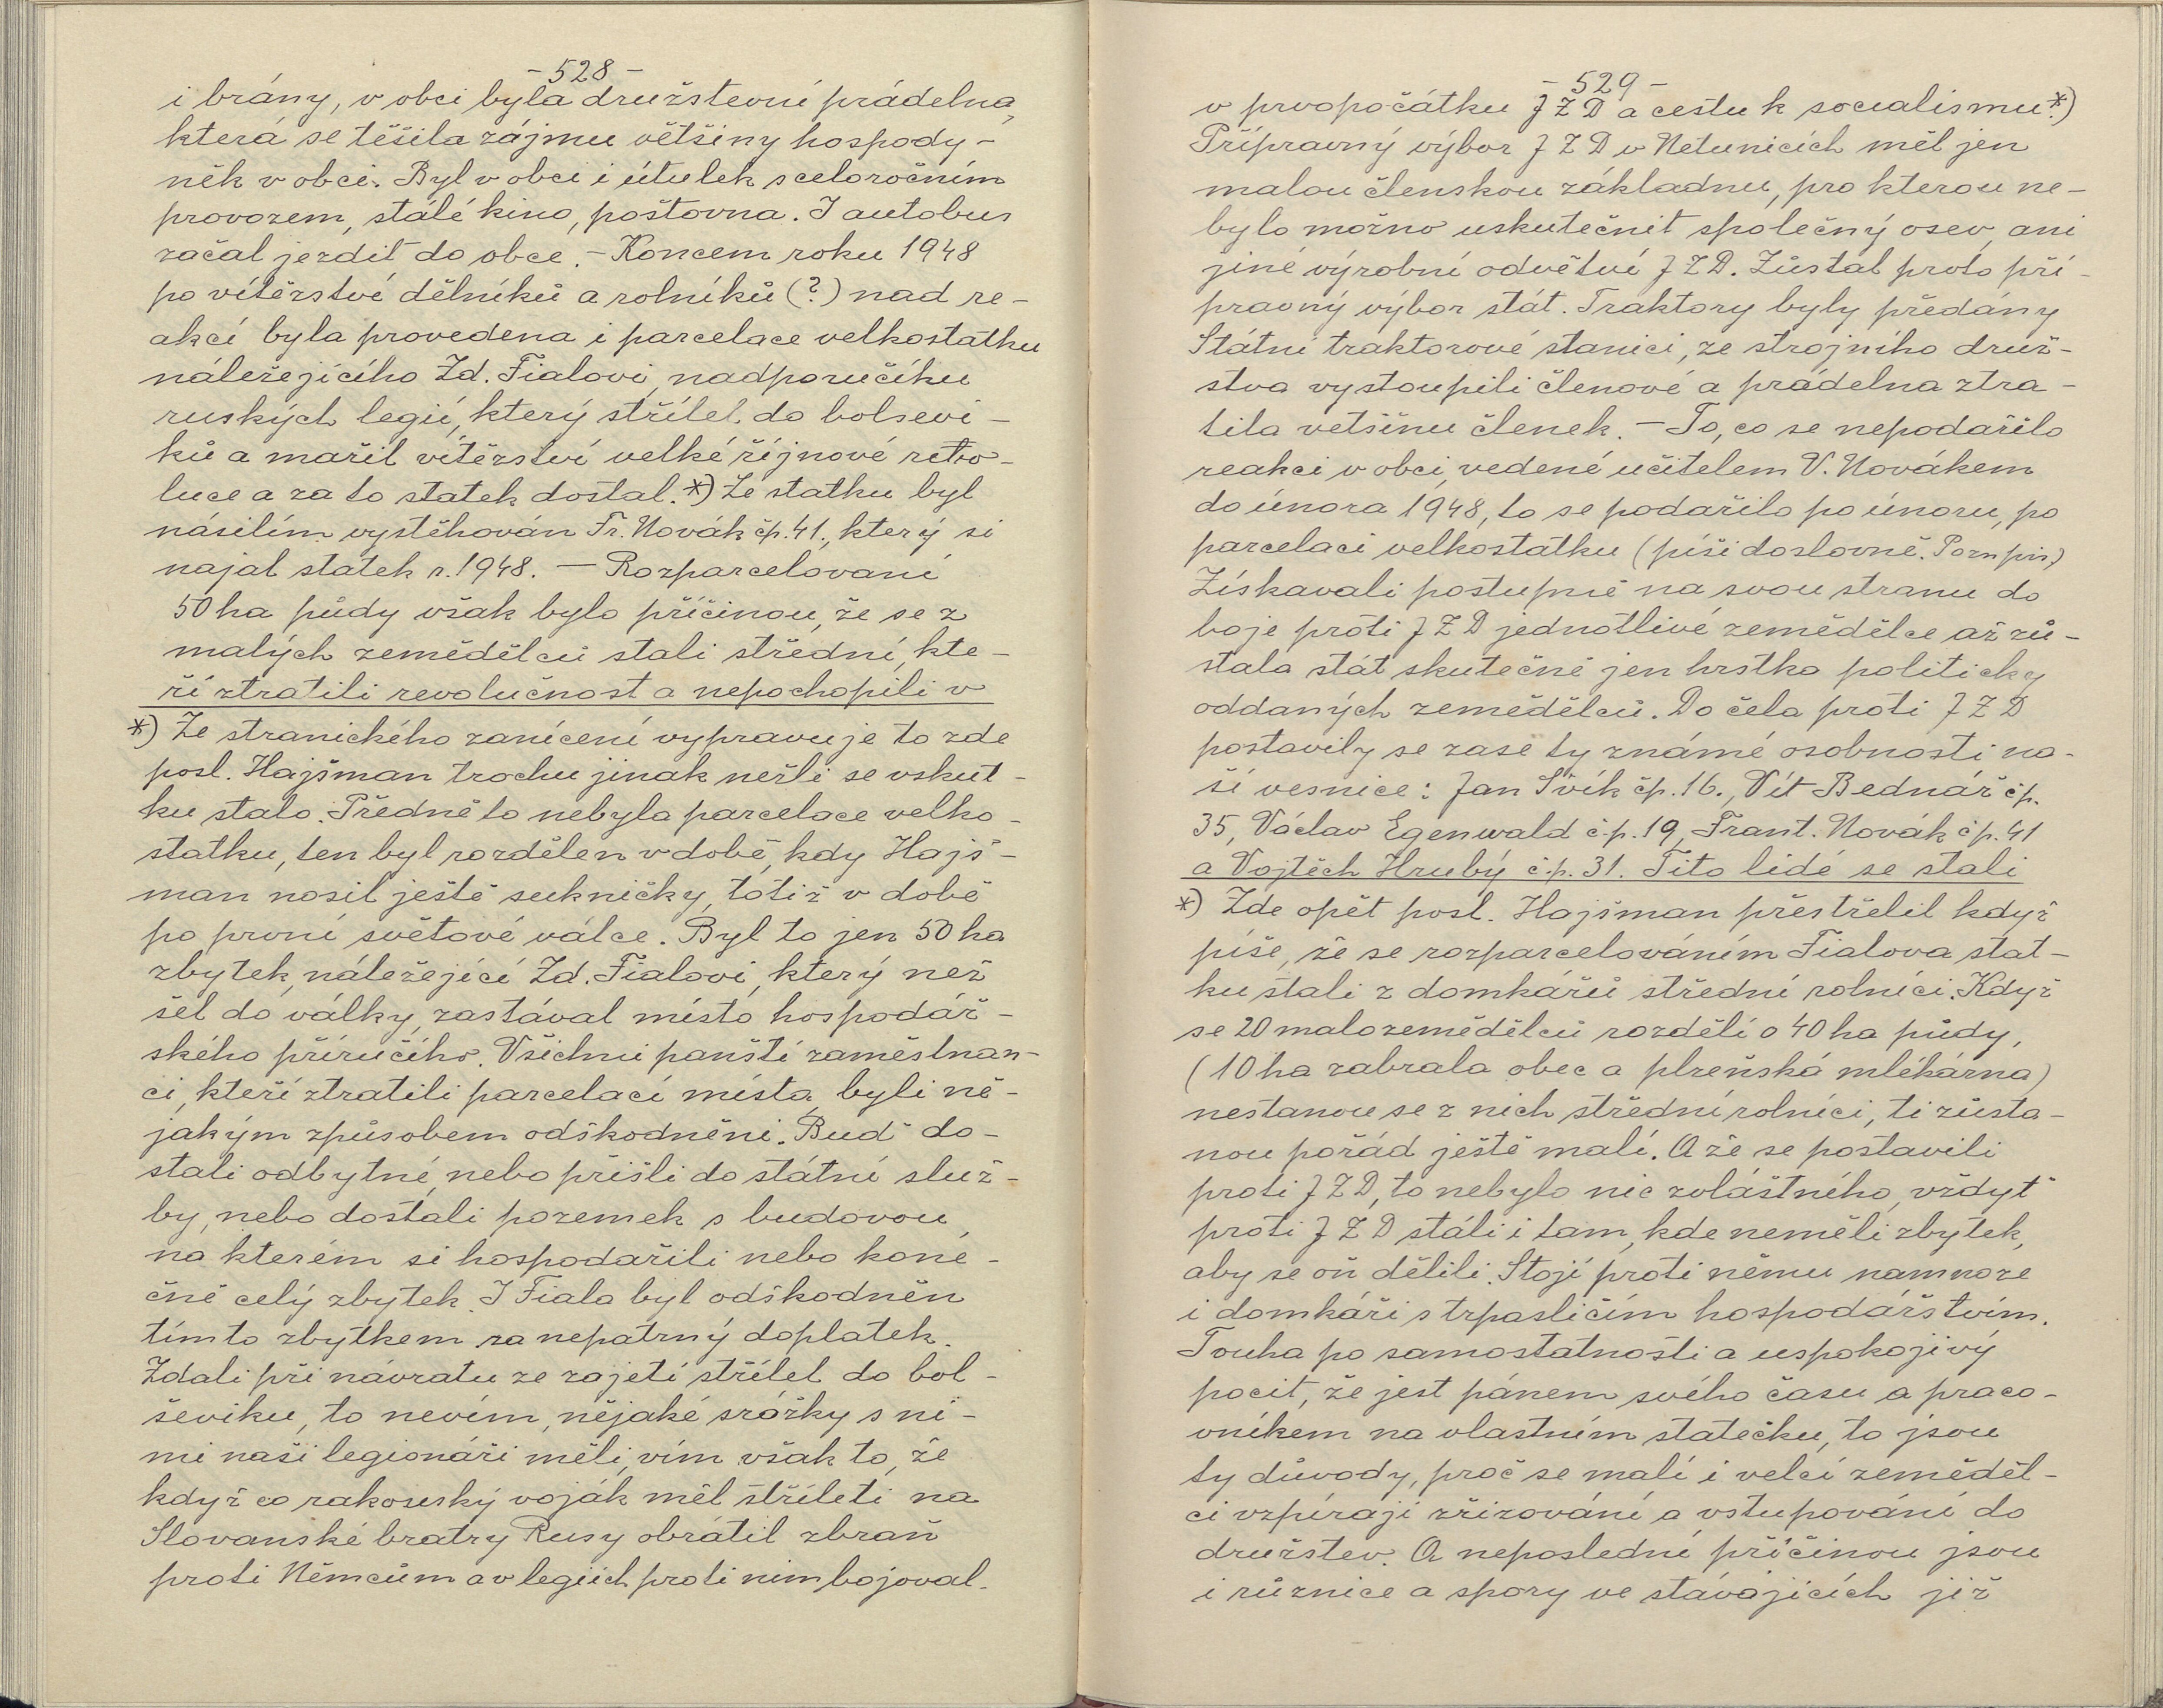 - 528 -
i brány, v obci byla družstevní prádelna,
která se těšila zájmu většiny hospody-
něk v obci. Byl v obci i útulek s celoročním
provozem, stálé kino, poštovna. I autobus
začal jezdit do obce. - Koncem roku 1948
po vítězství dělníků a rolníků (?) nad re-
akcí byla provedena i parcelace velkostatku
náležejícího Zd. Fialovi, nadporučíku
ruských legií, který střílel do bolševi-
ků a mařil vítězství velké říjnové revo-
luce a za to statek dostal.*) Ze statku byl
násilím vystěhován Fr. Novák čp. 41., který si
najal statek r. 1948. — Rozparcelovaní
50 ha půdy však bylo příčinou, že se z
malých zemědělců stali střední, kte-
ří ztratili revolučnost a nepochopili v
*) Ze stranického zanícení vypravuje to zde
posl. Hajšman trochu jinak nežli se vskut-
ku stalo. Předně to nebyla parcelace velko-
statku, ten byl rozdělen v době, kdy Hajš-
man nosil ještě sukničky, totiž v době
po první světové válce. Byl to jen 50 ha
zbytek, náležející Zd. Fialovi, který než
šel do války, zastával místo hospodář-
ského příručího. Všichni panští zaměstnan-
ci, kteří ztratili parcelací místa, byli ně-
jakým způsobem odškodněni. Buď do-
stali odbytné, nebo přišli do státní služ-
by, nebo dostali pozemek s budovou,
na kterém si hospodařili nebo kone-
čně celý zbytek. I Fiala byl odškodněn
tímto zbytkem za nepatrný doplatek.
Zdali při návratu ze zajetí střílel do bol-
ševiku, to nevím, nějaké srážky s ni-
mi naši legionáři měli, vím však to, že
když co rakouský voják měl stříleti na
Slovanské bratry Rusy obrátil zbraň
proti Němcům a v legiích proti nim bojoval.
- 529 -
v prvopočátku JZD a cestu k socialismu.*)
Přípravný výbor JZD v Netunicích měl jen
malou členskou základnu, pro kterou ne-
bylo možno uskutečnit společný osev, ani
jiné výrobní odvětví JZD. Zůstal proto pří-
pravný výbor stát. Traktory byly předány
Státní traktorové stanici, ze strojního druž-
stva vystoupili členové a prádelna ztra-
tila vetšinu členek. - To, co se nepodařilo
reakci v obci, vedené učitelem V. Novákem
do února 1948, to se podařilo po únoru, po
parcelaci velkostatku (píši doslovně. Pozn pis)
Získavali postupně na svou stranu do
boje proti JZD jednotlivé zemědělce až zů-
stala stát skutečně jen hrstka politicky
oddaných zemědělců. Do čela proti JZD
postavily se zase ty známé osobnosti na-
ší vesnice: Jan Švík čp. 16., Vít Bednář čp.
35, Václav Egenwald č.p. 19, Frant. Novák čp. 41
a Vojtěch Hrubý č.p. 31. Tito lidé se stali
*) Zde opět posl. Hajšman přestřelil když
píše, že se rozparcelováním Fialova stat-
ku stali z domkářů střední rolníci. Když
se 20 malozemědělců rozdělí o 40 ha půdy,
(10 ha zabrala obec a plzeňská mlékárna)
nestanou se z nich střední rolníci, ti zůsta-
nou pořád ještě malí. A že se postavili
proti JZD, to nebylo nic zvláštného, vždyť
proti JZD stáli i tam, kde neměli zbytek,
aby se oň dělili. Stojí proti němu namnoze
i domkáři s trpasličím hospodářstvím.
Touha po samostatnosti a uspokojivý
pocit, že jest pánem svého času a praco-
vníkem na vlastním statečku, to jsou
ty důvody, proč se malí i velcí zeměděl-
ci vzpírají zřizování a vstupování do
družstev. A neposlední příčinou jsou
i různice a spory ve stávajících již